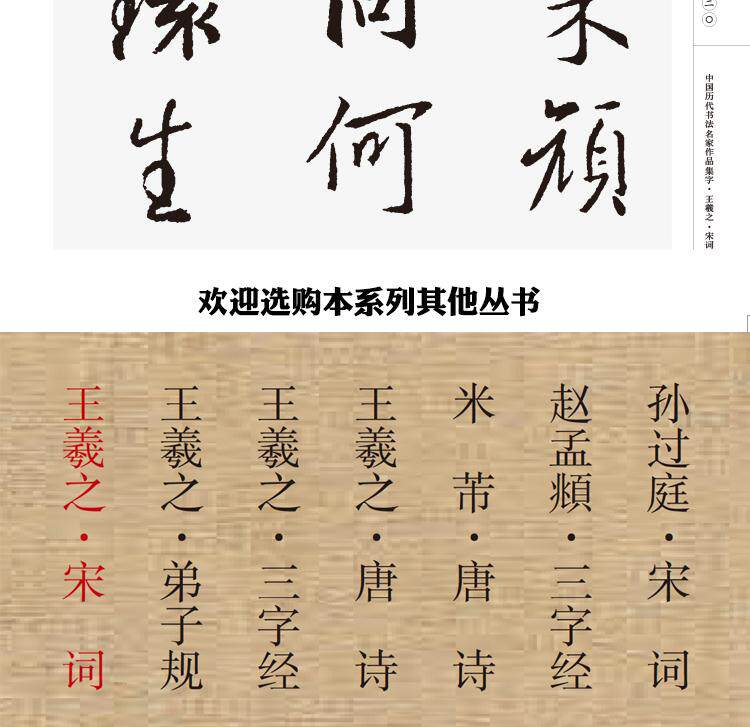 何
生
中国历代书法名家作品集字·王羲之·宋词
欢迎选购本系列其他丛书
孙过庭·宋词
赵孟頫·三字经
米芾·唐诗
王羲之·唐诗
王羲之·三字经
王羲之·弟子规
王羲之·宋词